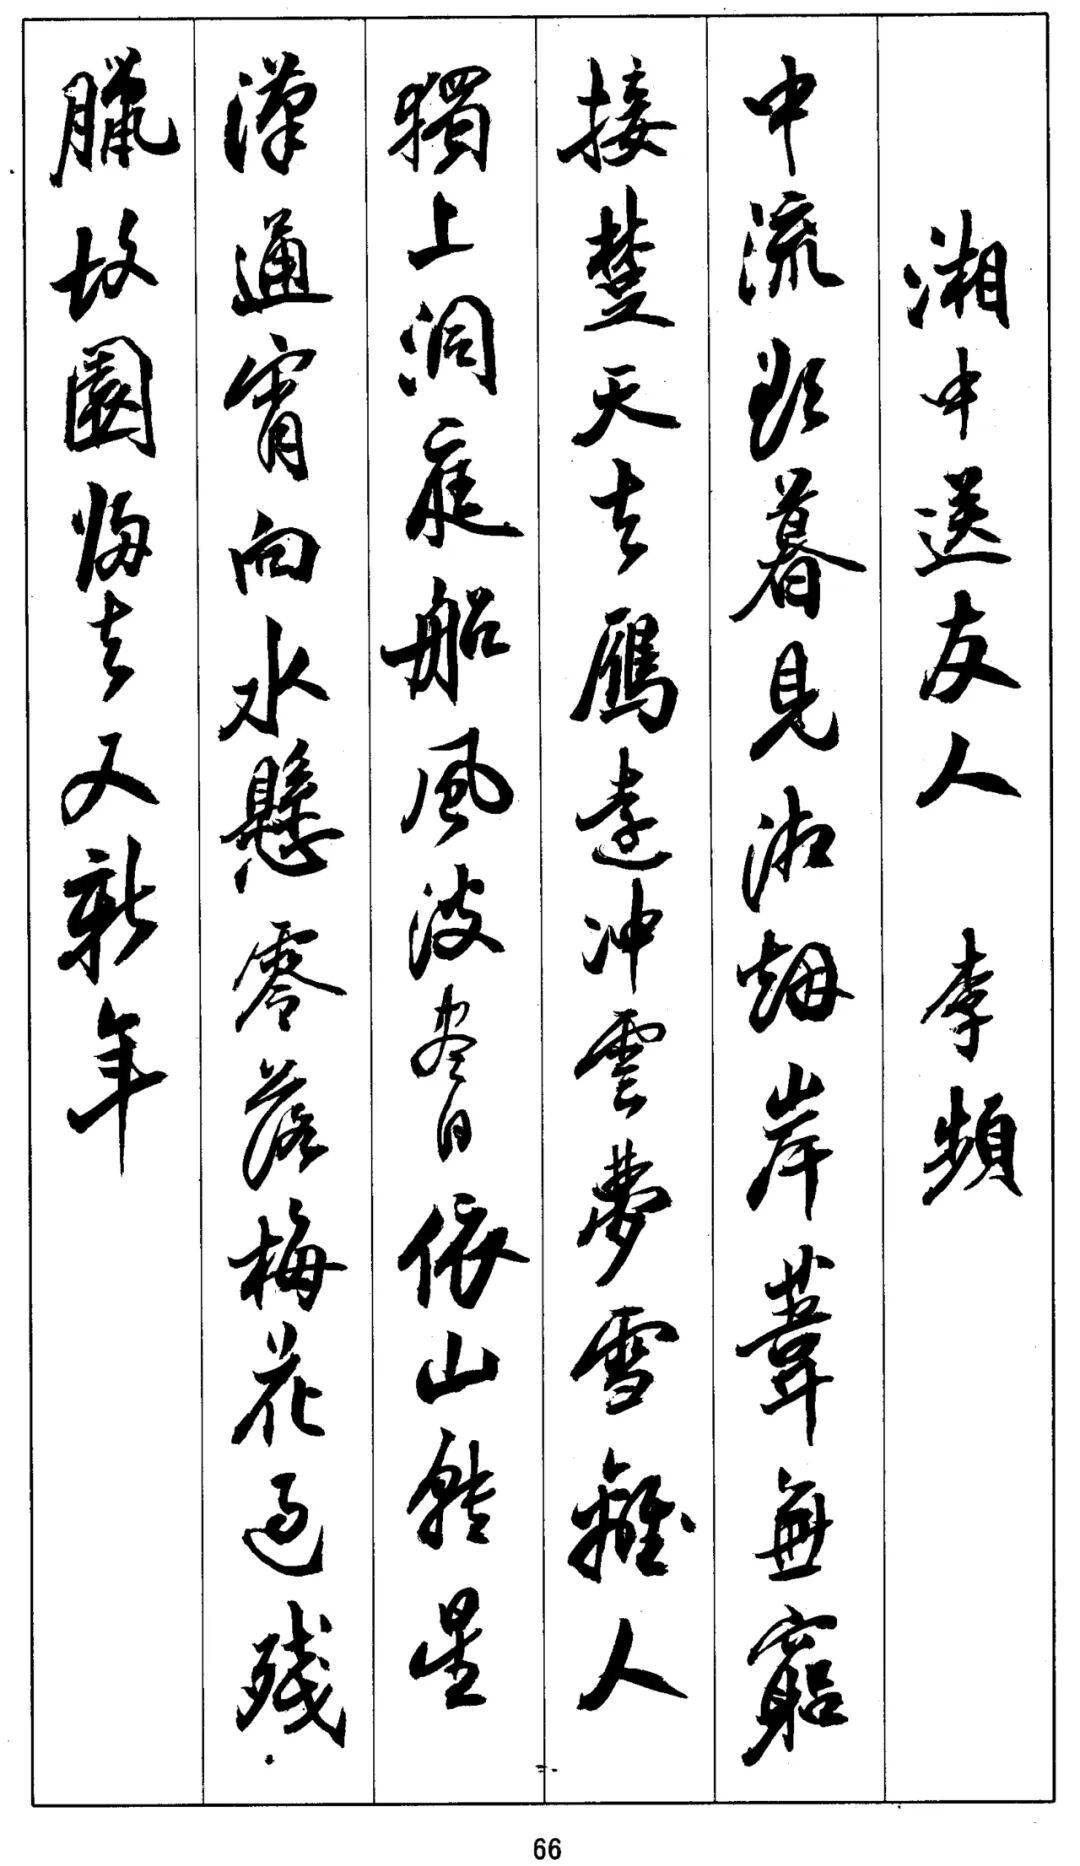 湘中送友人 李頻
中流欲暮見湘烟岸葦無窮
接楚天去鴈遠冲雲夢雪離人
獨上洞庭船風波盡日依山轉星
漢通宵向水懸零落梅花過残
臘故園歸去又新年
66